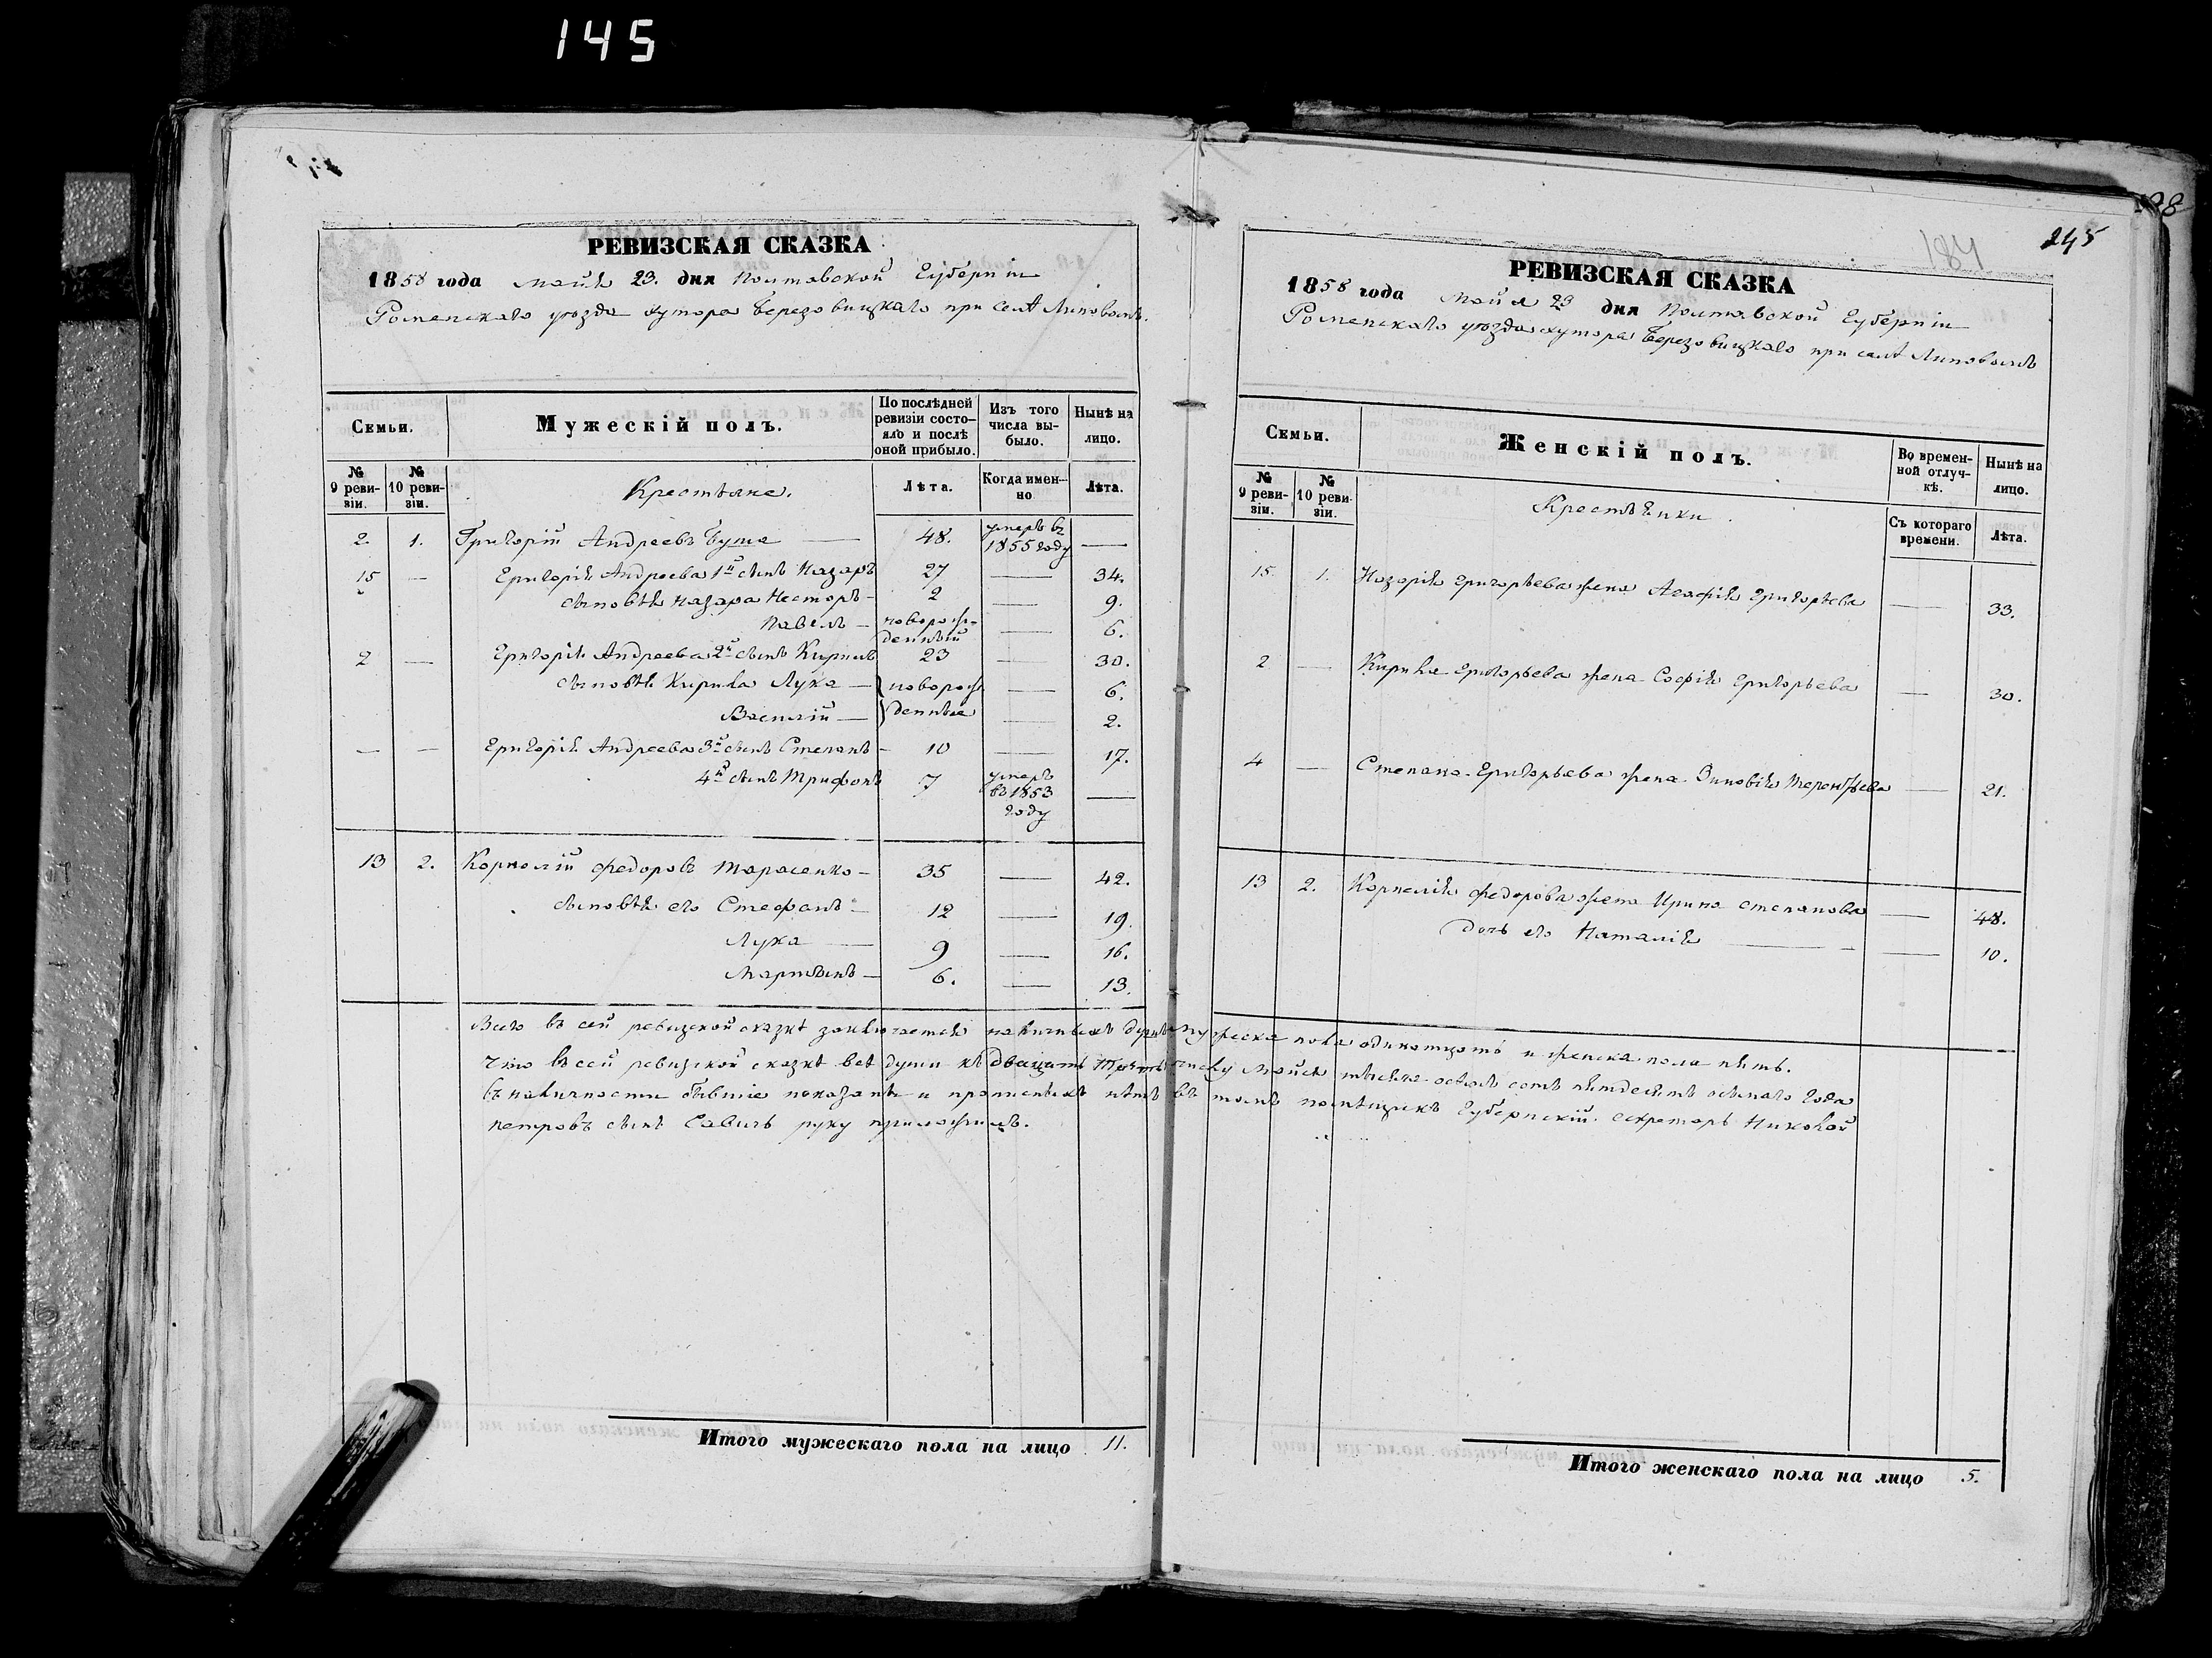 145
РЕВИЗСКАЯ СКАЗКА
1858 года Майя 23. дня Полтавской Губерніи
Роменскаго уѣзда хутора Березовицкаго при селѣ Липовомъ.
Семьи.
Мужескій полъ.
По послѣдней ревизіи состояло и послѣ оной прибыло.
Изъ того числа выбыло.
Нынѣ на лицо.
№ 9 ревизіи.
№ 10 ревизіи.
Крестьяне.
Лѣта.
Когда именно
Лѣта.
2. 1. Григорій Андреевъ Бута — 48. умеръ въ 1855 году —
15 — Григорія Андреева 1й сынъ Назаръ 27 — 34.
сыновья Назара Несторъ — 2 — 9.
Павелъ — новорожденный — 6.
2 — Григорія Андреева 2й сынъ Кирилъ 23 — 30.
сыновья Кирила Лука — новорожденные — 6.
Василій — — 2.
— — Григорія Андреева 3й сынъ Степанъ — 10 — 17.
4й сынъ Трифонъ 7 умеръ въ 1853 году —
13 2. Корнелій Федоровъ Тарасенко — 35 — 42.
сыновья его Стефанъ — 12 — 19.
Лука — 9 — 16.
Мартынъ — 6. — 13.
Итого мужескаго пола на лицо 11.
188
184
245
РЕВИЗСКАЯ СКАЗКА
1858 года Майя 23 дня Полтавской Губерніи
Роменскаго уѣзда хутора Березовицкаго при селѣ Липовомъ
Семьи.
Женскій полъ.
Во временной отлучкѣ.
Нынѣ на лицо.
№ 9 ревизіи.
№ 10 ревизіи.
Крестьянки.
Съ котораго времени.
Лѣта.
15. 1. Назарія Григорьева жена Агафія Григорьева — 33.
2 — Кирила Григорьева жена Софія Григорьева — 30.
4 — Степана Григорьева жена Зиновія Терентьева — 21.
13 2. Корнелія Федорова жена Ирина Степанова — 48.
дочь его Наталія — — 10.
Всего въ сей ревизской сказкѣ заключается наличныхъ душъ мужеска пола одинатцать и женска пола пять.
что въ сей ревизской сказкѣ всѣ души къ двацать третьему числу Майя мѣсяца осьмъ сотъ пятдесятъ осьмаго года
въ наличности бывшіе показаны и прописныхъ нѣтъ въ томъ помѣщикъ Губернскій секретарь Николай
Петровъ сынъ Савичъ руку приложилъ.
Итого женскаго пола на лицо 5.